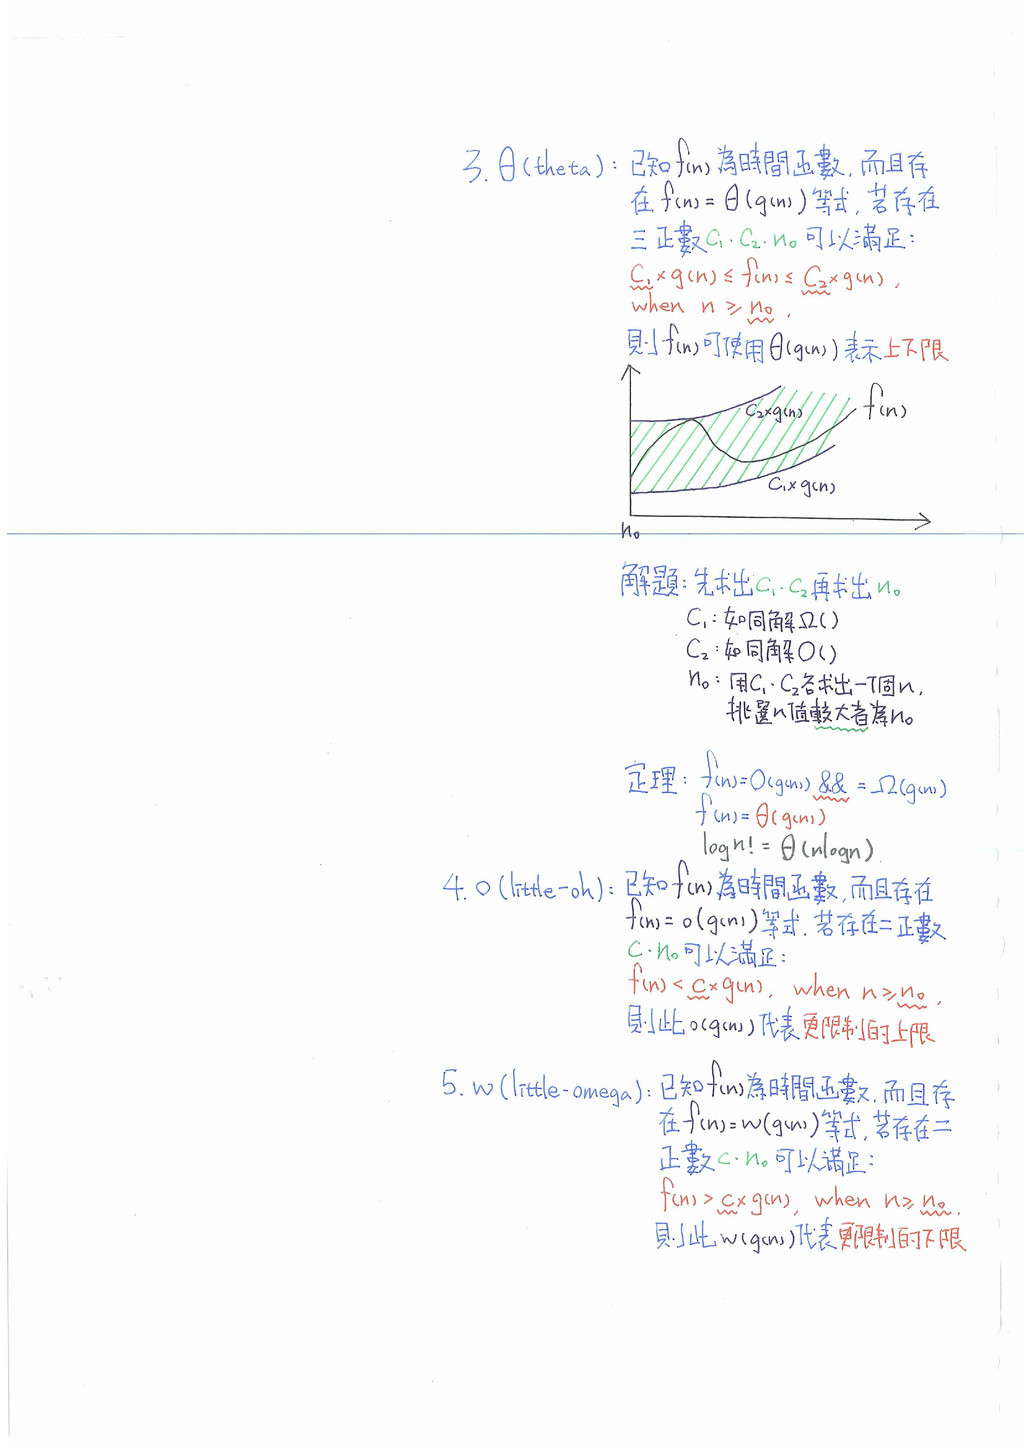 3. θ(theta): 已知f(n)為時間函數,而且存
在f(n)=θ(g(n))等式,若存在
三正數C₁、C₂、n₀可以滿足:
C₁×g(n)≤f(n)≤C₂×g(n),
when n≥n₀,
則f(n)可使用θ(g(n))表示上下限
f(n)
C₂×g(n)
C₁×g(n)
n₀
解題:先求出C₁、C₂再求出n₀
C₁:如同解Ω()
C₂:如同解O()
n₀:用C₁、C₂各求出一個n,
挑選n值較大者為n₀
定理: f(n)=O(g(n)) && =Ω(g(n))
f(n)=θ(g(n))
logn! = θ(nlogn)
4. o(little-oh): 已知f(n)為時間函數,而且存在
f(n)=o(g(n))等式,若存在二正數
C、n₀可以滿足:
f(n)<C×g(n), when n≥n₀,
則此o(g(n))代表更限制的上限
5. w(little-omega): 已知f(n)為時間函數,而且存
在f(n)=w(g(n))等式,若存在二
正數C、n₀可以滿足:
f(n)>C×g(n), when n≥n₀.
則此w(g(n))代表更限制的下限